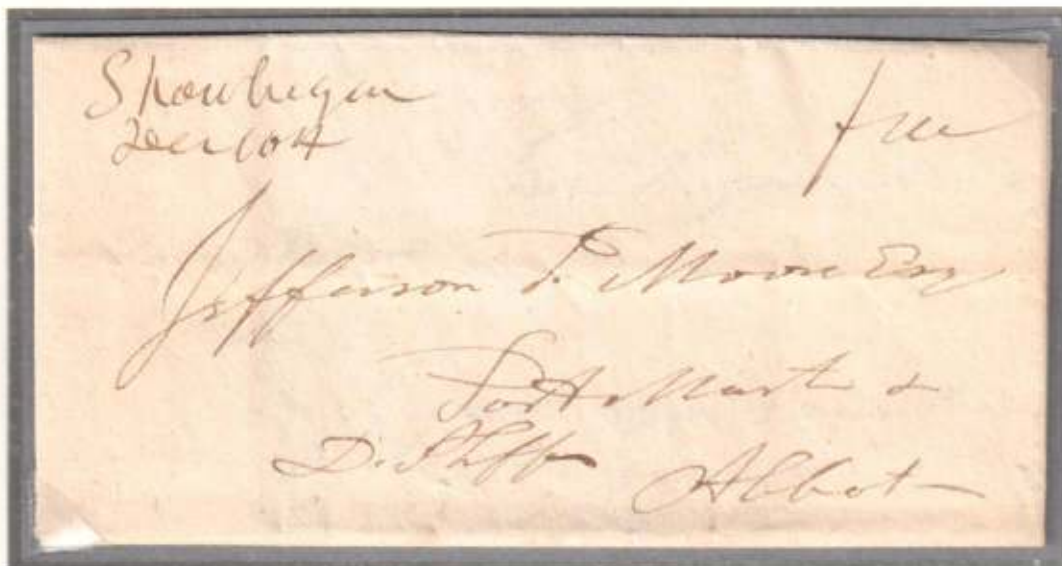 Skowhegan
Dec 10th
free
Jefferson T. Moore Esq
Post Mast &
D. Shff
Abbot